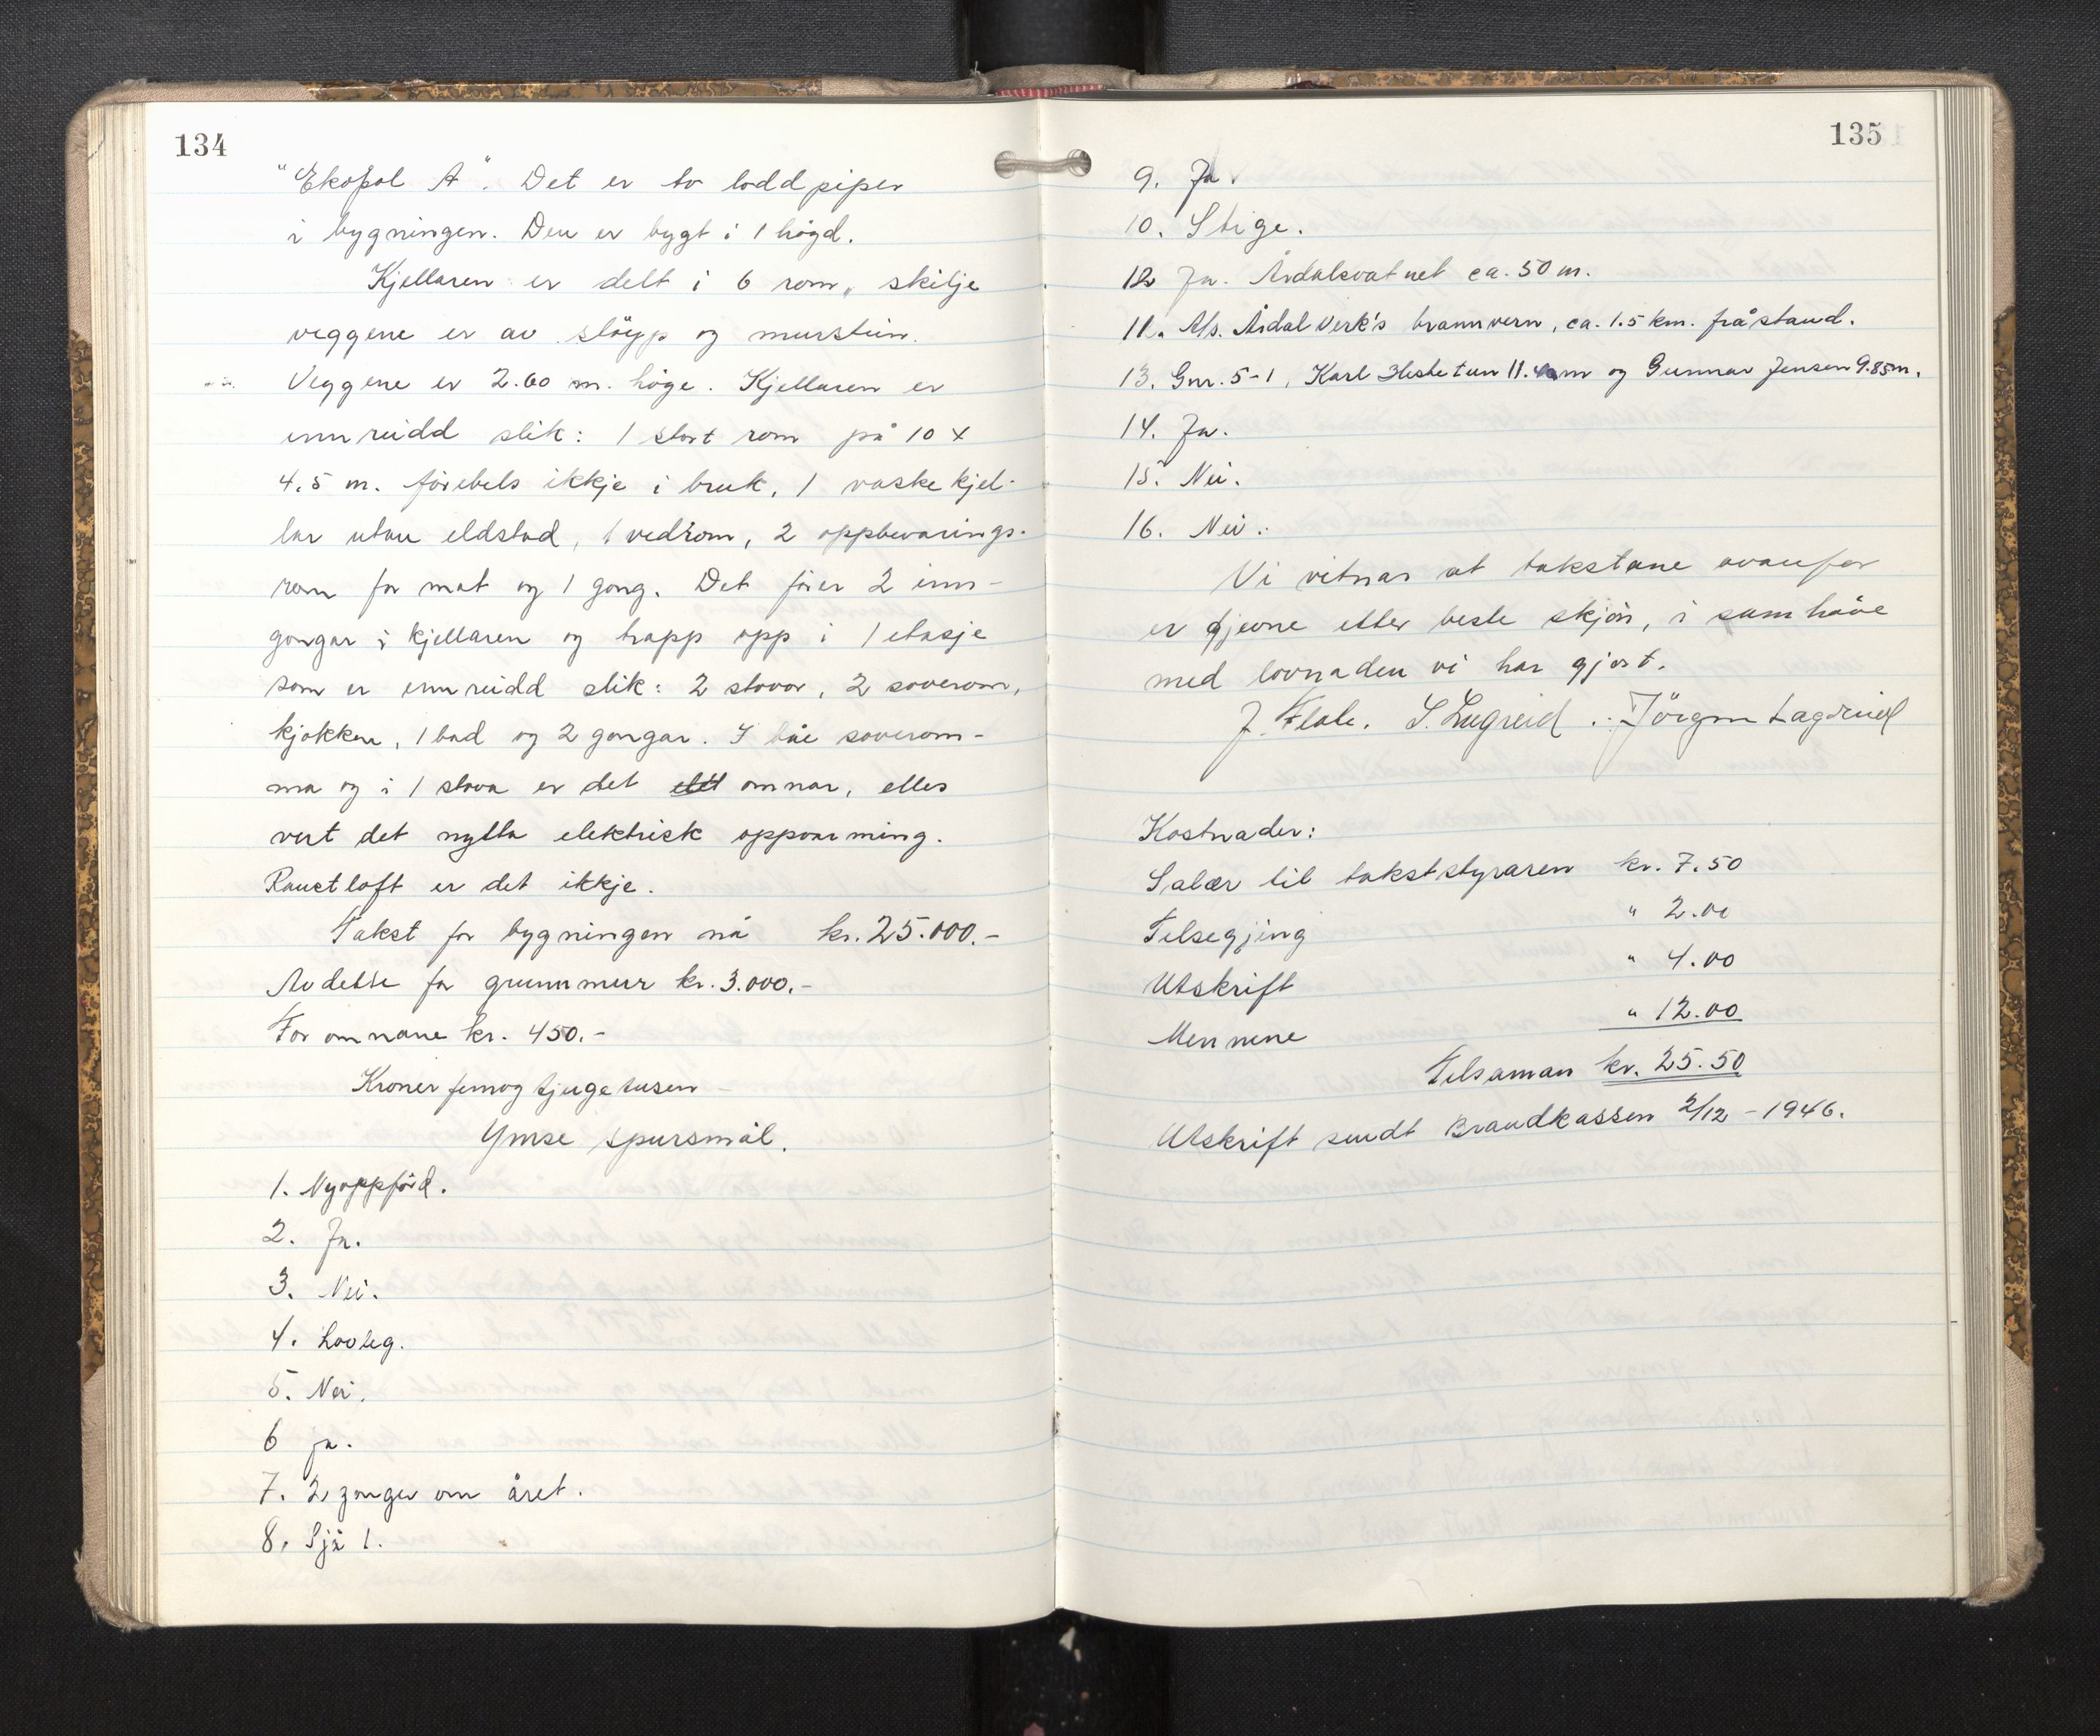 134
"Ekopol A". Det er to loddpiper
i bygningen. Den er bygt i 1 högd.
Kjellaren er delt i 6 rom, skilje
veggene er av slöyp og murstein.
Veggene er 2.60 m. höge. Kjellaren er
innreidd slik: 1 stort rom på 10 x
4.5 m. förebels ikkje i bruk, 1 vaskekjel-
lar utan eldstad, 1 vedrom, 2 oppbevarings-
rom for mat og 1 gong. Det förer 2 inn-
gongar i kjellaren og trapp opp i 1 etasje
som er innreidd slik: 2 stovor, 2 soverom,
kjökken, 1 bad og 2 gongar. I båe soverom-
ma og i 1 stova er det omnar, elles
vert det nytta elektrisk oppvarming.
Röustloft er det ikkje.
Takst for bygningen nå kr. 25.000.-
Avdelse for grunnmur kr. 3.000.-
For omnane kr. 450.-
Kroner femogtjugetusen
Ymse spursmål.
1. Nyoppförd.
2. Ja.
3. Nei.
4. Lovleg.
5. Nei.
6 ja.
7. 2 gonger om året.
8. Sjå 1.
135
9. Ja.
10. Stige.
12 Ja. Årdalsvatnet ca. 50 m.
11. A/s. Årdal Verk's brannvern, ca. 1.5 km. fråstand.
13. Gnr. 5-1, Karl Hestetun 11.40m og Gunnar Jensen 9.85m.
14. Ja.
15. Nei.
16. Nei.
Vi vitnar at takstane ovanfor
er gjevne etter beste skjön, i samhöve
med lovnaden vi har gjort.
J. Flate. S. Lægreid. Jörgen Lægreid
Kostnader:
Salær til takststyraren kr. 7.50
Tilsegjing " 2.00
Utskrift " 4.00
Mennene " 12.00
Tilsaman kr. 25.50
Utskrift sendt Brandkassen 2/12 - 1946.